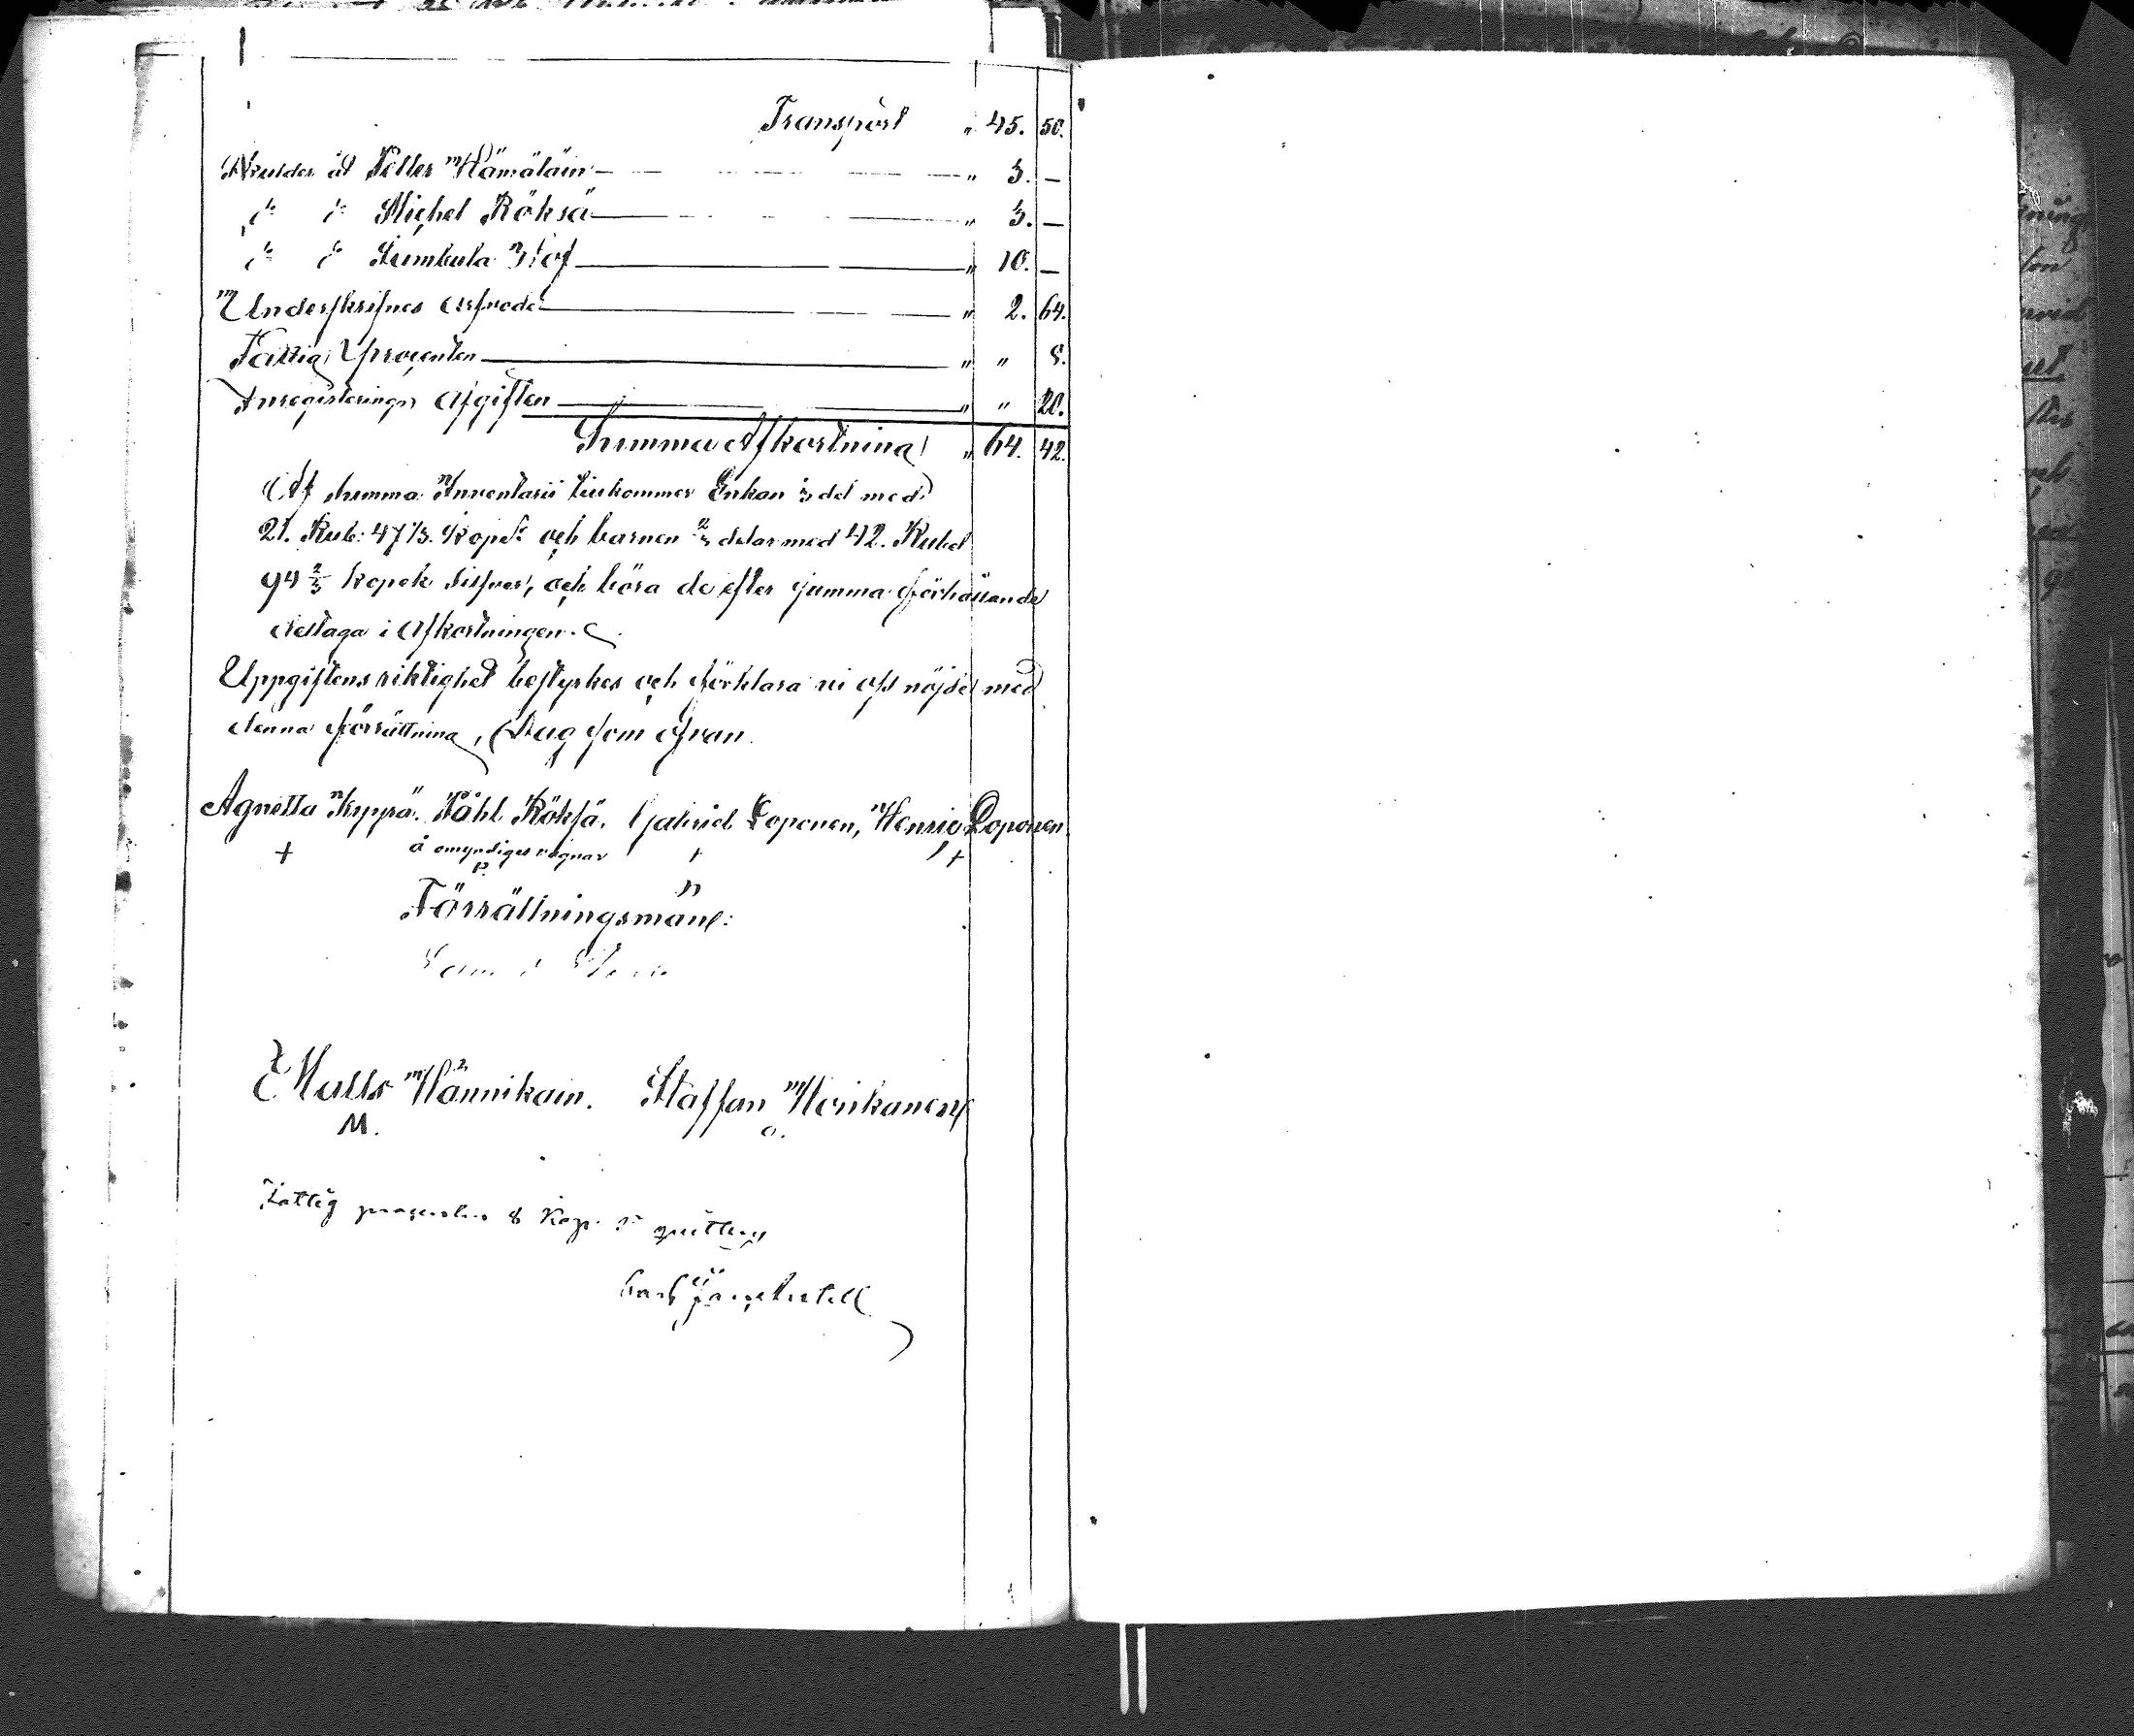 Transport " 45. 50.
Skulder åt Petter Hämäläin " 3. —
" " Michel Röksä " 3. —
" " Sumbula Hof " 10. —
Underskrifnes arfvode " 2. 64.
Fattig procenten " " 8.
Inregisterings afgiften " " 20.
Summa Afkortning " 64. 42.
Af summa Inventarii tillkommer Enkan 1/3 del med
21. Rub: 47 1/3. Kopek och barnen 2/3 delar med 42. Rubel
94 2/3 kopek silfver, och böra de efter samma förhållande
deltaga i Afkortningen.
Uppgiftens riktighet bestyrkes och förklara vi oss nöjde med
denna förrättning, Dag som ofvan.
Agnetta Kyyrä. Påhl Röksä. Gabriel Loponen, Henric Loponen
å omyndiges vägnar
Förrättningsmän:
Matts Hännikäin. Staffan Horikanen
M.
Fattig procenten 8 Kop. Sr qvitteras